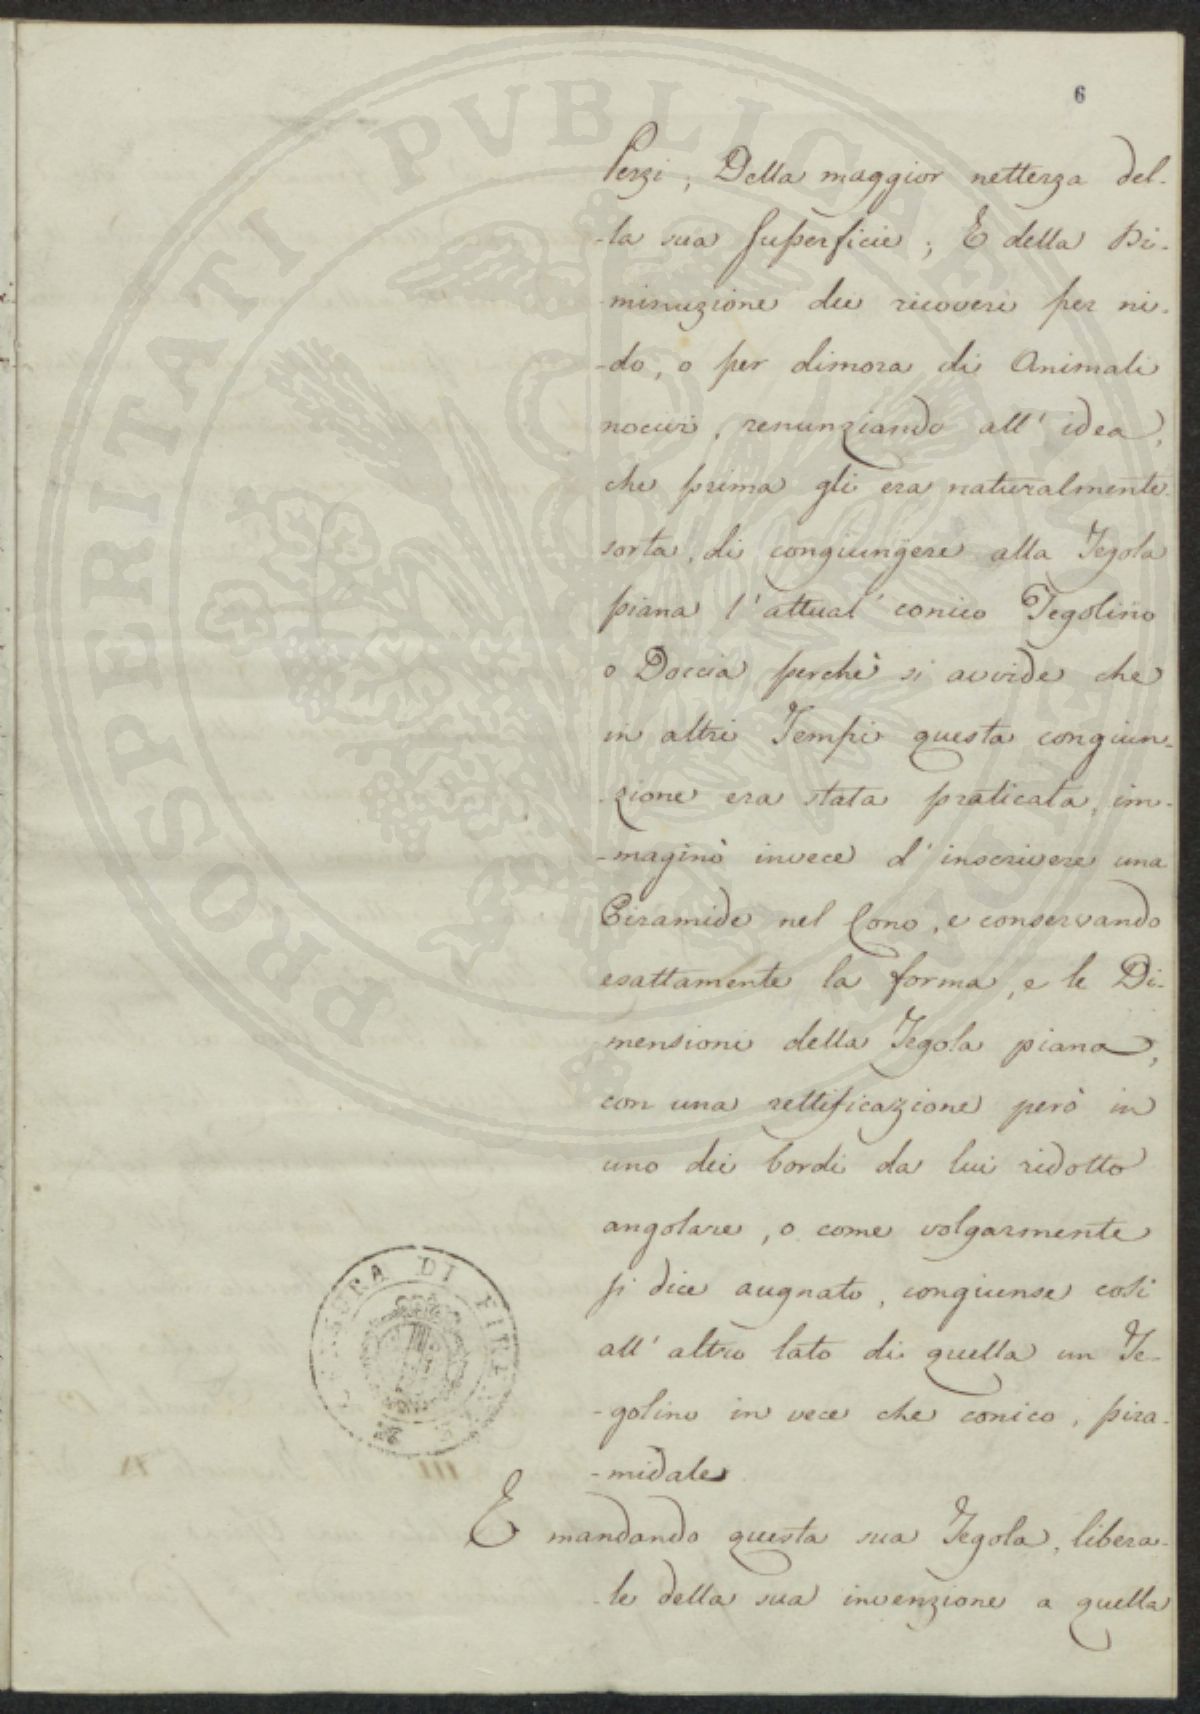 6
Pezzi; Della maggior nettezza del-
-la sua Superficie; E della Di-
-minuzione dei ricoveri per ni-
-do, o per dimora di Animali
nocivi, renunziando all' idea,
che prima gli era naturalmente
sorta, di congiungere alla Tegola
piana l' attual conico Tegolino
o Doccia perchè si avvide che
in altri Tempi questa congiun-
-zione era stata praticata, im-
-maginò invece d' inscrivere una
Piramide nel Cono, e conservando
esattamente la forma, e le Di-
mensioni della Tegola piana,
con una rettificazione però in
uno dei bordi da lui ridotto
angolare, o come volgarmente
si dice augnato, congiunse così
all' altro lato di quella un Te-
-golino in vece che conico, pira-
-midale
E mandando questa sua Tegola, libera-
-le della sua invenzione a quella
PROSPERITATI PVBLICAE
DI FIRE